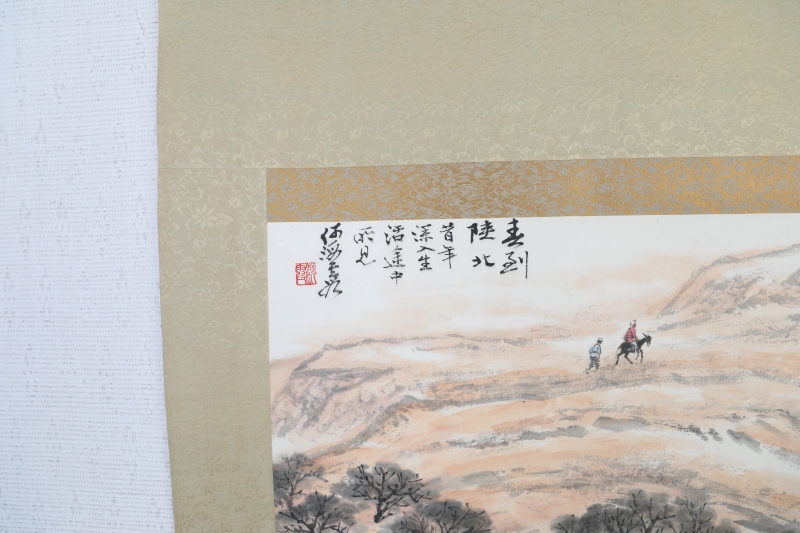 春到
陕北
昔年
深入生
活途中
所见
何海霞